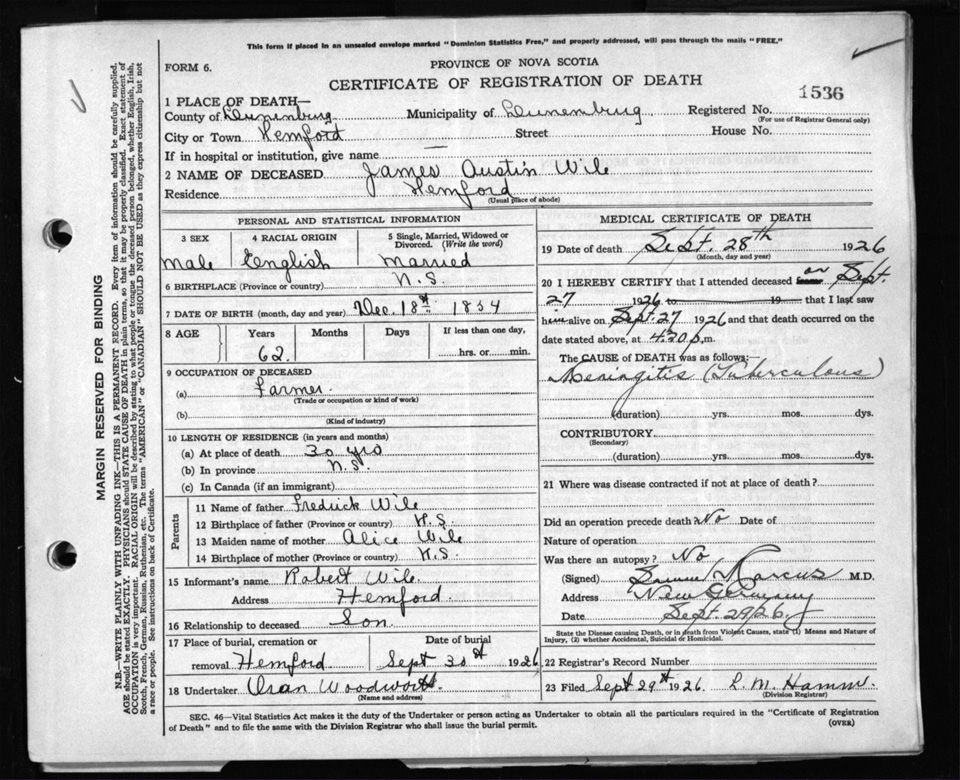 This form if placed in an unsealed envelope marked "Dominion Statistics Free," and properly addressed, will pass through the mails "FREE."
FORM 6.
PROVINCE OF NOVA SCOTIA
CERTIFICATE OF REGISTRATION OF DEATH
1536
1 PLACE OF DEATH—
County of Lunenburg Municipality of Lunenburg Registered No.
(For use of Registrar General only)
City or Town Hemford Street House No.
If in hospital or institution, give name —
2 NAME OF DECEASED James Austin Wile
Residence Hemford
(Usual place of abode)
PERSONAL AND STATISTICAL INFORMATION
3 SEX 4 RACIAL ORIGIN 5 Single, Married, Widowed or Divorced. (Write the word)
Male English Married
6 BIRTHPLACE (Province or country) N.S.
7 DATE OF BIRTH (month, day and year) Dec. 18th 1854
8 AGE Years Months Days If less than one day,
62. hrs. or min.
9 OCCUPATION OF DECEASED
(a) Farmer.
(Trade or occupation or kind of work)
(b)
(Kind of industry)
10 LENGTH OF RESIDENCE (in years and months)
(a) At place of death 30 yrs
(b) In province N.S.
(c) In Canada (if an immigrant)
Parents
11 Name of father Fredrick Wile
12 Birthplace of father (Province or country) N.S.
13 Maiden name of mother Alice Wile
14 Birthplace of mother (Province or country) N.S.
15 Informant's name Robert Wile.
Address Hemford.
16 Relationship to deceased Son.
17 Place of burial, cremation or Date of burial
removal Hemford Sept 30th 1926
18 Undertaker Oran Woodworth.
(Name and address)
MEDICAL CERTIFICATE OF DEATH
19 Date of death Sept. 28th 1926
(Month, day and year)
20 I HEREBY CERTIFY that I attended deceased from on Sept.
27 1926 to 19 that I last saw
him alive on Sept. 27 1926 and that death occurred on the
date stated above, at 4.20 p.m.
The CAUSE of DEATH was as follows:
Meningitis (Tuberculous)
(duration) yrs. mos. dys.
CONTRIBUTORY
(Secondary)
(duration) yrs. mos. dys.
21 Where was disease contracted if not at place of death?
Did an operation precede death? No Date of
Nature of operation
Was there an autopsy? No
(Signed) Marcus M.D.
Address New Germany
Date Sept. 29/26.
State the Disease causing Death, or in death from Violent Causes, state (1) Means and Nature of
Injury, (2) whether Accidental, Suicidal or Homicidal.
22 Registrar's Record Number
23 Filed Sept 29th 1926. L. M. Hamm.
(Division Registrar)
SEC. 46—Vital Statistics Act makes it the duty of the Undertaker or person acting as Undertaker to obtain all the particulars required in the "Certificate of Registration
of Death" and to file the same with the Division Registrar who shall issue the burial permit.
(OVER)
MARGIN RESERVED FOR BINDING
N.B.—WRITE PLAINLY WITH UNFADING INK—THIS IS A PERMANENT RECORD. Every item of information should be carefully supplied.
AGE should be stated EXACTLY. PHYSICIANS should STATE CAUSE OF DEATH in plain terms, so that it may be properly classified. Exact statement of
OCCUPATION is very important. RACIAL ORIGIN will be described by stating to what people or tongue the deceased person belonged, whether English, Irish,
Scotch, French, German, Russian, Ruthenian, etc. The terms "AMERICAN" or "CANADIAN" SHOULD NOT BE USED as they express citizenship but not
a race or people. See instructions on back of Certificate.